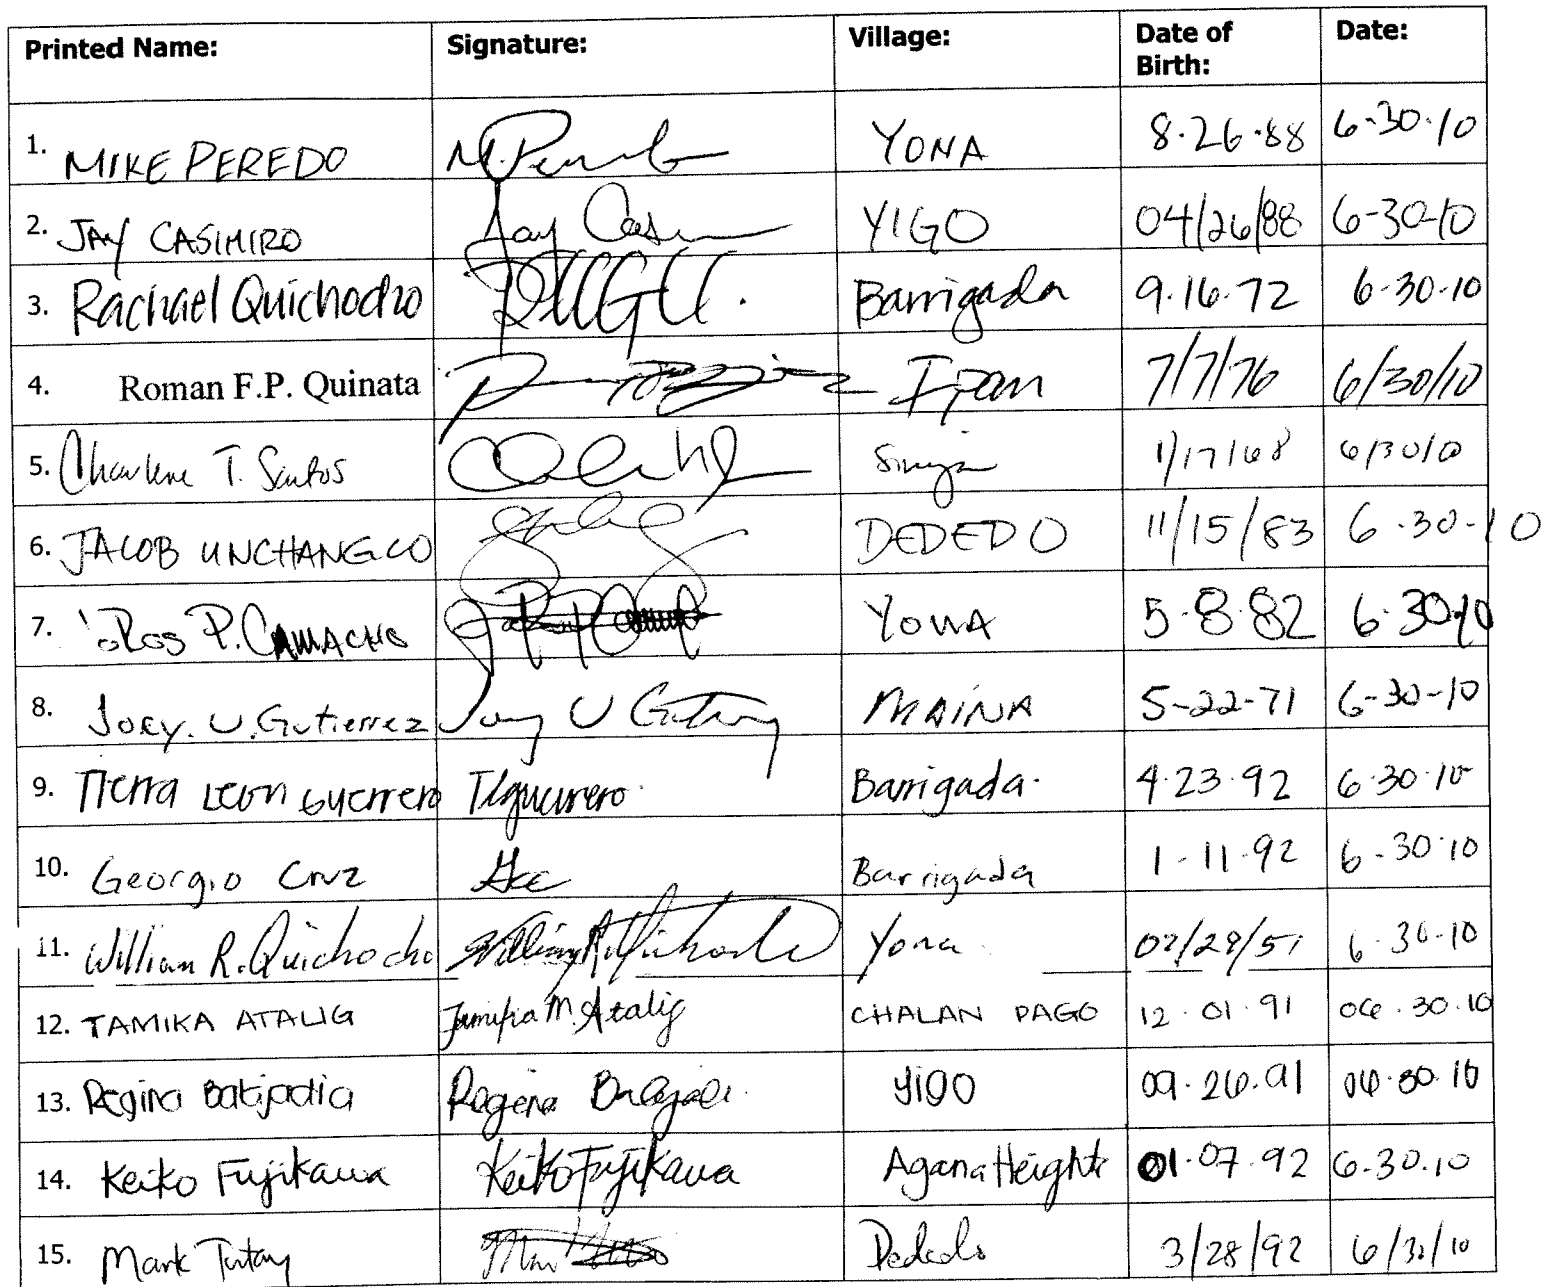 Printed Name: Signature: Village: Date of Birth: Date:
1. MIKE PEREDO YONA 8·26·88 6-30-10
2. JAY CASIMIRO Jay YIGO 04/26/88 6-30-10
3. Rachael Barrigada 9·16·72 6-30-10
4. Roman F.P. Quinata Ipan 7/7/76 6/30/10
5. Charlene T. Santos 1/17/68 6/30/10
6. JACOB UNCHANGCO DEDEDO 11/15/83 6-30-10
7. P. CAMACHO YONA 5·8·82 6·30·10
8. JOEY. U. Gutierrez Joey U MAINA 5-22-71 6-30-10
9. Tierra Leon Guerrero Tlguerrero Barrigada 4·23·92 6·30·10
10. Georgio Cruz Barrigada 1-11-92 6-30-10
11. William R. Quichocho William R. Quichocho Yona 6-30-10
12. TAMIKA ATALIG M. Atalig CHALAN PAGO 12·01·91 06·30·10
13. Regina Yigo 09·26·91 06·30·10
14. Keiko Fujikawa Keiko Fujikawa Agana Heights 01·07·92 6·30·10
15. Mark Dededo 3/28/92